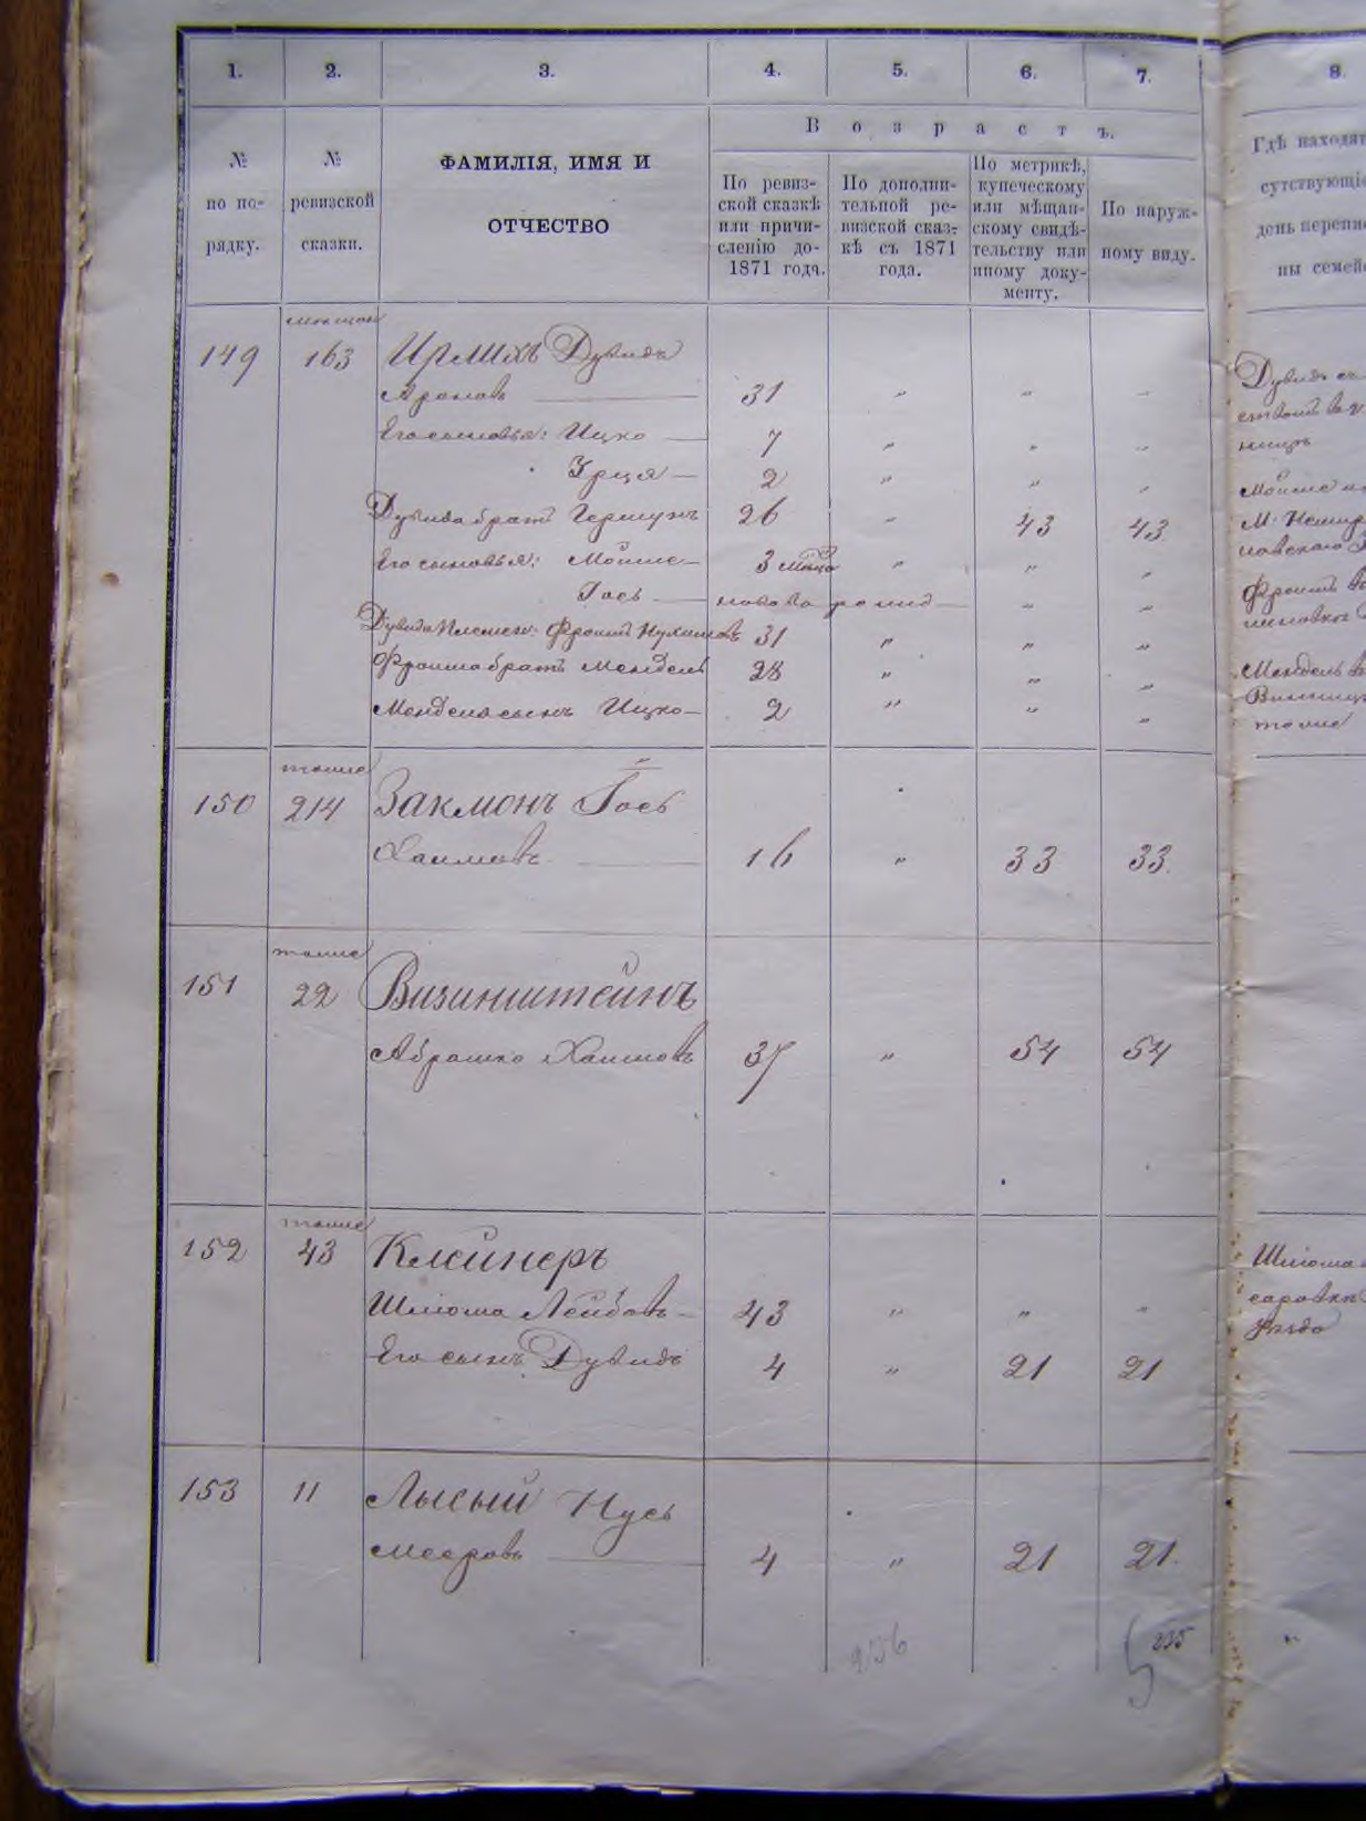 1. 2. 3. 4. 5. 6. 7. 8.
№ по по- рядку.
№ ревизской сказки.
ФАМИЛІЯ, ИМЯ И
ОТЧЕСТВО
Возрастъ.
По ревиз-
ской сказкѣ
или причи-
сленію до
1871 года.
По дополни-
тельной ре-
визской сказ-
кѣ съ 1871
года.
По метрикѣ,
купеческому
или мѣщан-
скому свидѣ-
тельству или
иному доку-
менту.
По наруж-
ному виду.
Гдѣ находя
сутствующі
день перепи
ны семей
149 163 Ирлихъ Дувидъ
Ароновъ 31 " " "
Его сыновья: Ицко 7 " " "
Урця 2 " " "
Дувида братъ Гершунъ 26 " 43 43
Его сыновья: Мойше 3 мѣсца " " "
Гось новорожд " "
Дувида племен: Фроимъ Нухимовъ 31 " " "
Фроима братъ Мендель 28 " " "
Менделя сынъ Ицко 2 " " "
Дувидъ съ
ницѣ
Мойше
М. Немир
Фроимъ
Мендель в
Винниц
тоже
тоже
150 214 Закмонъ Гось
Хаимовъ 16 " 33 33
тоже
151 22 Визинштейнъ
Абрашко Хаимовъ 37 " 54 54
тоже
152 43 Клейнеръ
Шліома Лейбовъ 43 " " "
Его сынъ Дувидъ 4 " 21 21
Шліома
153 11 Лысый Нусь
Мееровъ 4 " 21 21
236
235